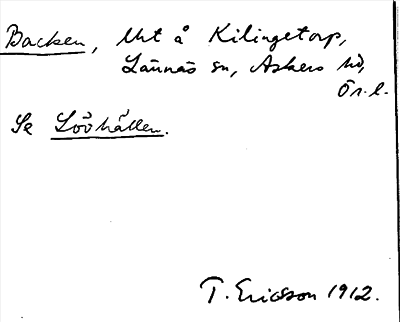 Backen, Uht å Kilingetorp,
Lännäs sn, Askers hd,
Ör. l.
Se Lövhällen.
T. Ericsson 1912.